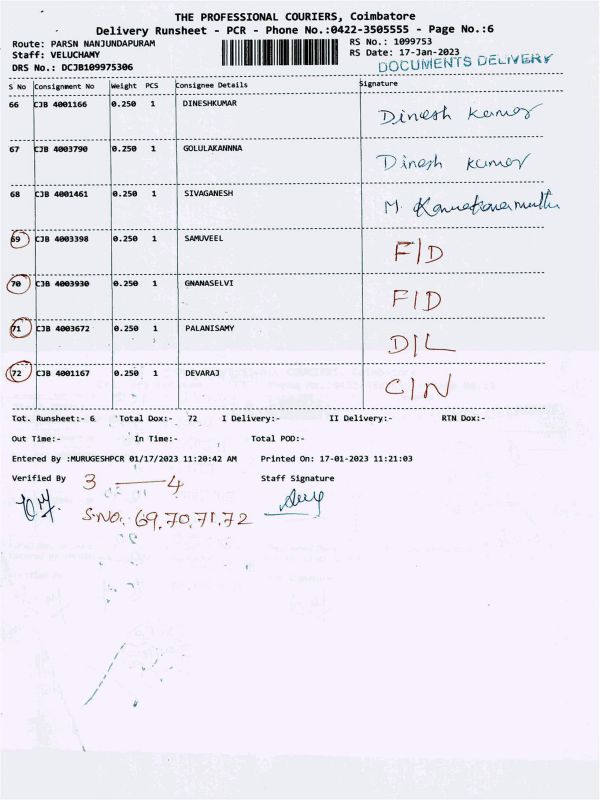 THE PROFESSIONAL COURIERS, Coimbatore
Delivery Runsheet - PCR - Phone No.:0422-3505555 - Page No.:6
Route: PARSN NANJUNDAPURAM RS No.: 1099753
Staff: VELUCHAMY RS Date: 17-Jan-2023
DRS No.: DCJB109975306 DOCUMENTS DELIVERY
S No Consignment No Weight PCS Consignee Details Signature
66 CJB 4001166 0.250 1 DINESHKUMAR Dinesh kumar
67 CJB 4003790 0.250 1 GOLULAKANNNA Dinesh kumar
68 CJB 4001461 0.250 1 SIVAGANESH M.
69 CJB 4003398 0.250 1 SAMUVEEL F/D
70 CJB 4003930 0.250 1 GNANASELVI F/D
71 CJB 4003672 0.250 1 PALANISAMY D/L
72 CJB 4001167 0.250 1 DEVARAJ C/N
Tot. Runsheet:- 6 Total Dox:- 72 I Delivery:- II Delivery:- RTN Dox:-
Out Time:- In Time:- Total POD:-
Entered By :MURUGESHPCR 01/17/2023 11:20:42 AM Printed On: 17-01-2023 11:21:03
Verified By 3 — 4 Staff Signature
S.NO. 69,70,71,72